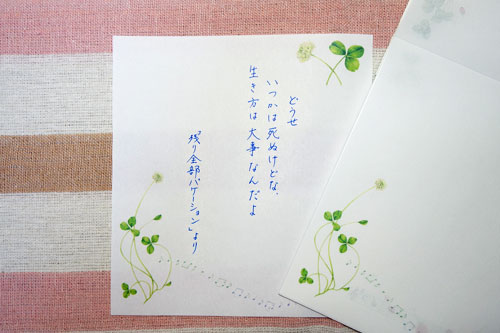 どうせ
いつかは死ぬけどな、
生き方は大事なんだよ
「残り全部バケーション」より